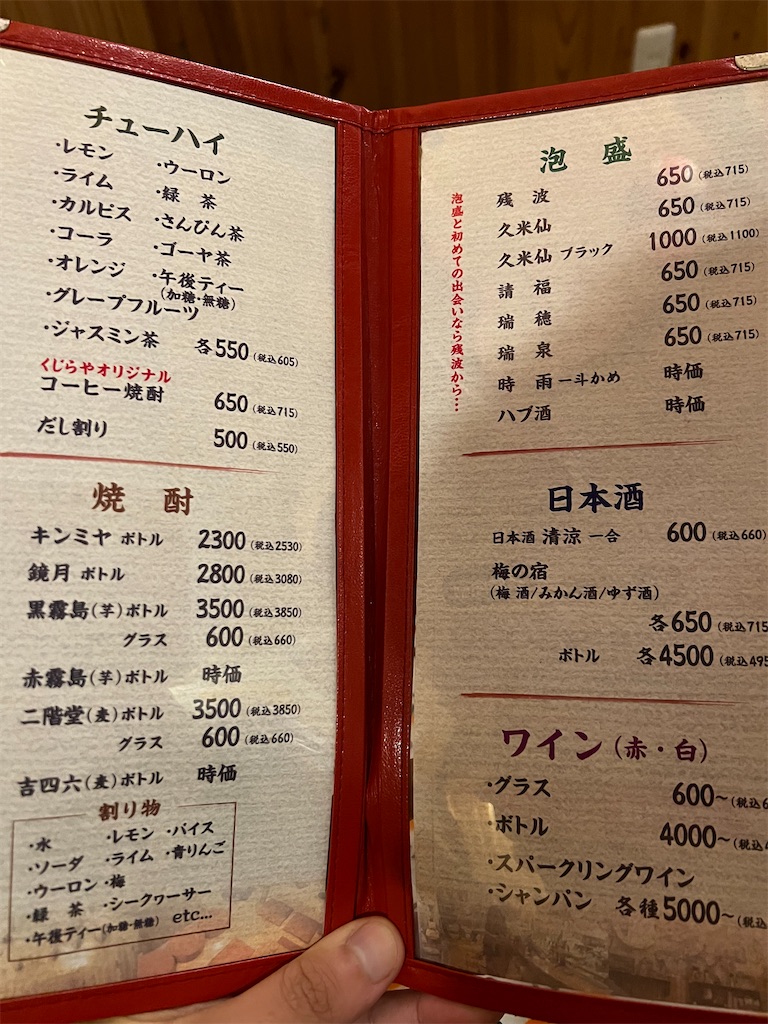 チューハイ
・レモン ・ウーロン
・ライム ・緑 茶
・カルピス ・さんぴん茶
・コーラ ・ゴーヤ茶
・オレンジ ・午後ティー
(加糖・無糖)
・グレープフルーツ
・ジャスミン茶 各550(税込605)
くじらやオリジナル
コーヒー焼酎 650(税込715)
だし割り 500(税込550)
焼 酎
キンミヤ ボトル 2300(税込2530)
鏡月 ボトル 2800(税込3080)
黒霧島(芋)ボトル 3500(税込3850)
グラス 600(税込660)
赤霧島(芋)ボトル 時価
二階堂(麦)ボトル 3500(税込3850)
グラス 600(税込660)
吉四六(麦)ボトル 時価
割り物
・水 ・レモン ・バイス
・ソーダ ・ライム ・青りんご
・ウーロン ・梅
・緑 茶 ・シークヮーサー
・午後ティー(加糖・無糖) etc...
泡 盛
泡盛と初めての出会いなら残波から…
残 波 650(税込715)
久米仙 650(税込715)
久米仙 ブラック 1000(税込1100)
請 福 650(税込715)
瑞 穂 650(税込715)
瑞 泉 650(税込715)
時 雨 一斗かめ 時価
ハブ酒 時価
日本酒
日本酒 清涼 一合 600(税込660)
梅の宿
(梅 酒/みかん酒/ゆず酒)
各650(税込715
ボトル 各4500(税込495
ワイン(赤・白)
・グラス 600〜(税込6
・ボトル 4000〜(税込4
・スパークリングワイン
・シャンパン 各種5000〜(税込